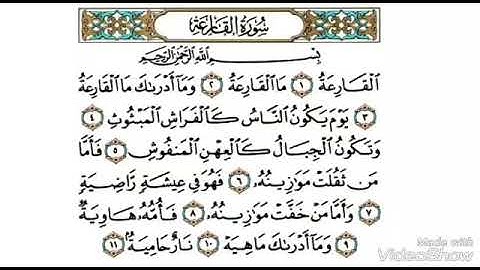 سُورَةُ القَارِعَة
بِسْمِ اللَّهِ الرَّحْمَٰنِ الرَّحِيمِ
الْقَارِعَةُ ١ مَا الْقَارِعَةُ ٢ وَمَا أَدْرَىٰكَ مَا الْقَارِعَةُ
٣ يَوْمَ يَكُونُ النَّاسُ كَالْفَرَاشِ الْمَبْثُوثِ ٤
وَتَكُونُ الْجِبَالُ كَالْعِهْنِ الْمَنفُوشِ ٥ فَأَمَّا
مَن ثَقُلَتْ مَوَٰزِينُهُۥ ٦ فَهُوَ فِي عِيشَةٍ رَّاضِيَةٍ
٧ وَأَمَّا مَنْ خَفَّتْ مَوَٰزِينُهُۥ ٨ فَأُمُّهُۥ هَاوِيَةٌ
٩ وَمَا أَدْرَىٰكَ مَا هِيَهْ ١٠ نَارٌ حَامِيَةٌ ١١
Made with
VideoShow